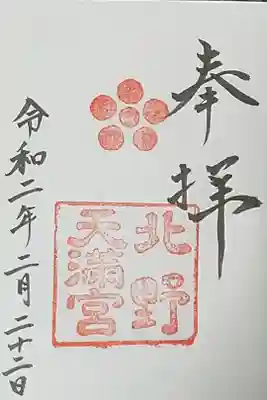 奉拝
北野
天満宮
令和二年二月二十二日